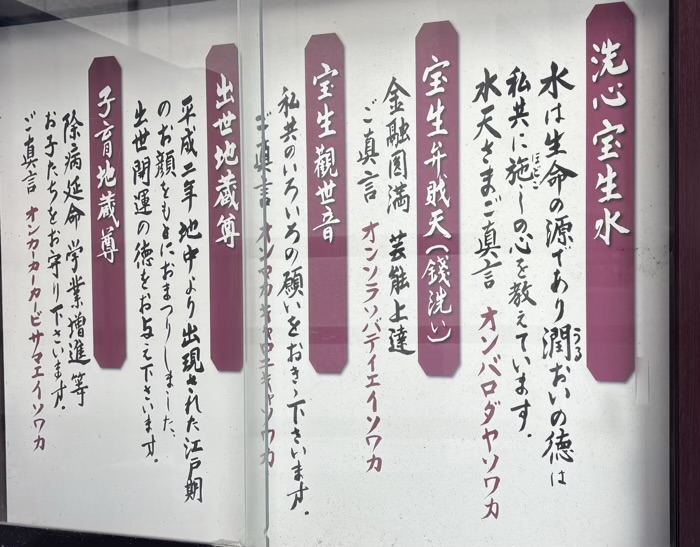 洗心宝生水
水は生命の源であり潤おいの徳は
うる
私共に施しの心を教えています。
ほどこ
水天さまご真言 オンバロダヤソワカ
宝生弁戝天(銭洗い)
金融圓満 芸能上達
ご真言 オンソラソバテイエイソワカ
宝生觀世音
私共のいろいろの願いをおきゝ下さいます。
ご真言
出世地蔵尊
平成二年地中より出現された江戸期
のお顔をもとにおまつりしました、
出世開運の徳をお与え下さいます。
子育地蔵尊
除病延命 学業増進等
お子たちをお守り下さいます。
ご真言 オンカーカーカービサマエイソワカ